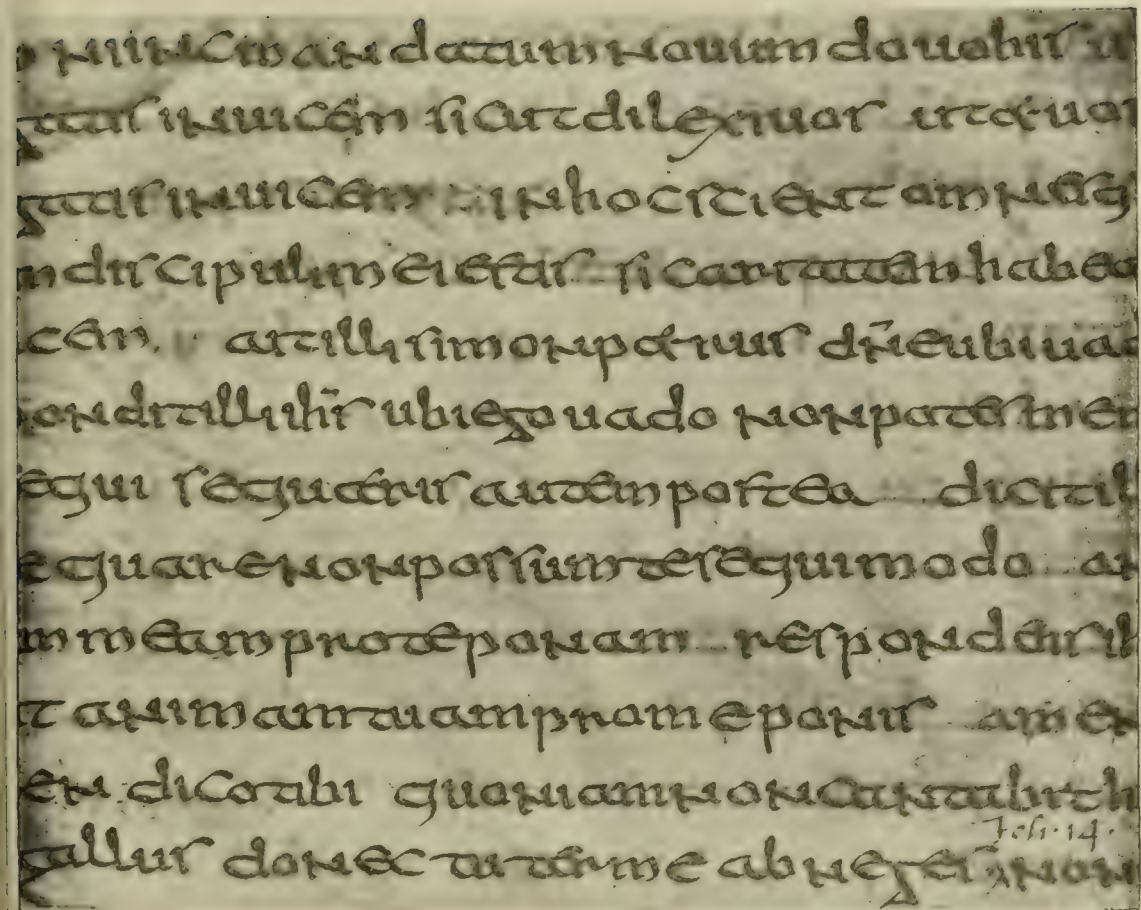 nunc mandatum nouum do uobis u
gatis inuicem sicut dilexi uos ut et uos
gatis inuicem in hoc scient omnes q
m discipuli mei estis si caritatem habea
cem ait illi simon petrus dn̄e ubi uad
ondit illi ih̄s ubi ego uado non potes me
equi sequeris autem postea dicit il
e quare non possum te sequi modo an
m meam pro te ponam respondens ih
t animam tuam pro me ponis amen
en dico tibi quoniam non cantabit h
Joh. 14.
gallus donec tu ter me abneges non